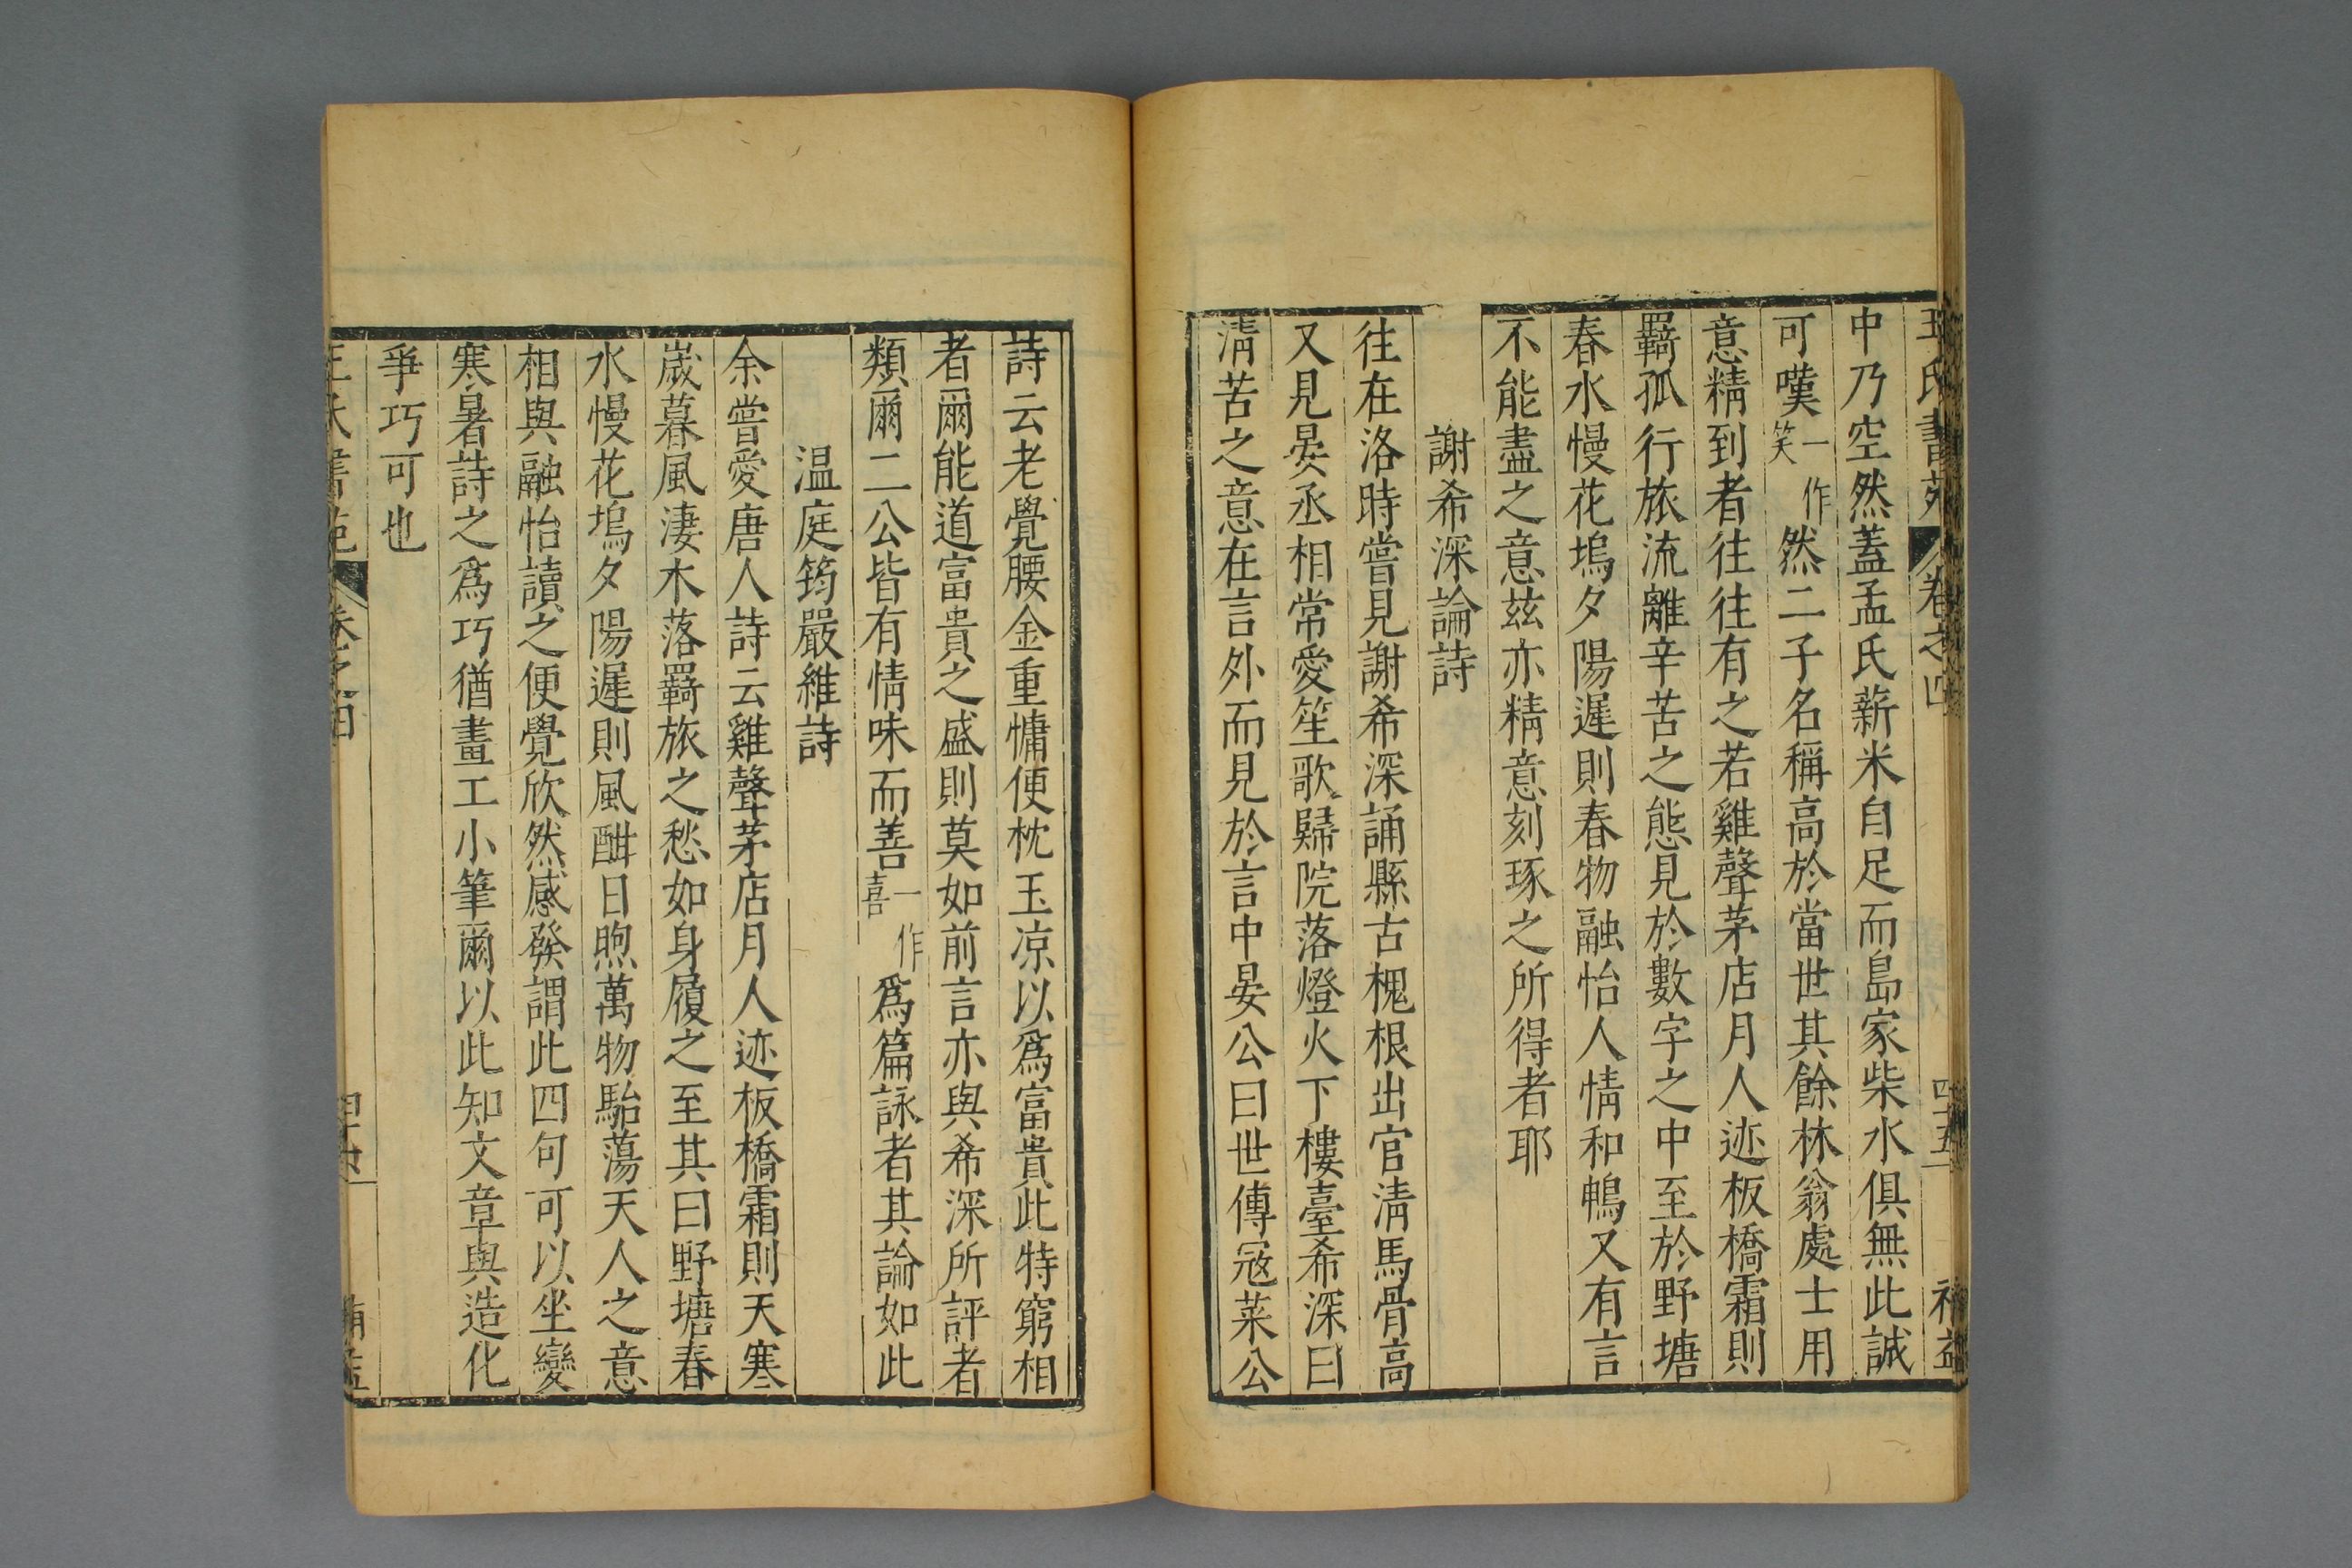 王氏書苑 卷之四 四十五 補益
中乃空然蓋孟氏薪米自足而島家柴水俱無此誠
可嘆一作笑然二子名稱高於當世其餘林翁處士用
意精到者往往有之若雞聲茅店月人迹板橋霜則
羇孤行旅流離辛苦之態見於數字之中至於野塘
春水慢花塢夕陽遲則春物融怡人情和暢又有言
不能盡之意茲亦精意刻琢之所得者耶
謝希深論詩
往在洛時嘗見謝希深誦縣古槐根出官清馬骨高
又見晏丞相常愛笙歌歸院落燈火下樓臺希深曰
清苦之意在言外而見於言中晏公曰世傳寇萊公
詩云老覺腰金重慵便枕玉凉以爲富貴此特窮相
者爾能道富貴之盛則莫如前言亦與希深所評者
類爾二公皆有情味而善一作喜爲篇詠者其論如此
温庭筠嚴維詩
余嘗愛唐人詩云雞聲茅店月人迹板橋霜則天寒
嵗暮風淒木落羇旅之愁如身履之至其曰野塘春
水慢花塢夕陽遲則風酣日煦萬物駘蕩天人之意
相與融怡讀之便覺欣然感發謂此四句可以坐變
寒暑詩之爲巧猶畫工小筆爾以此知文章與造化
爭巧可也
王氏書苑 卷之四